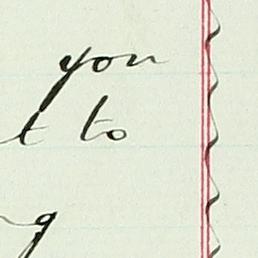 you
t to
g